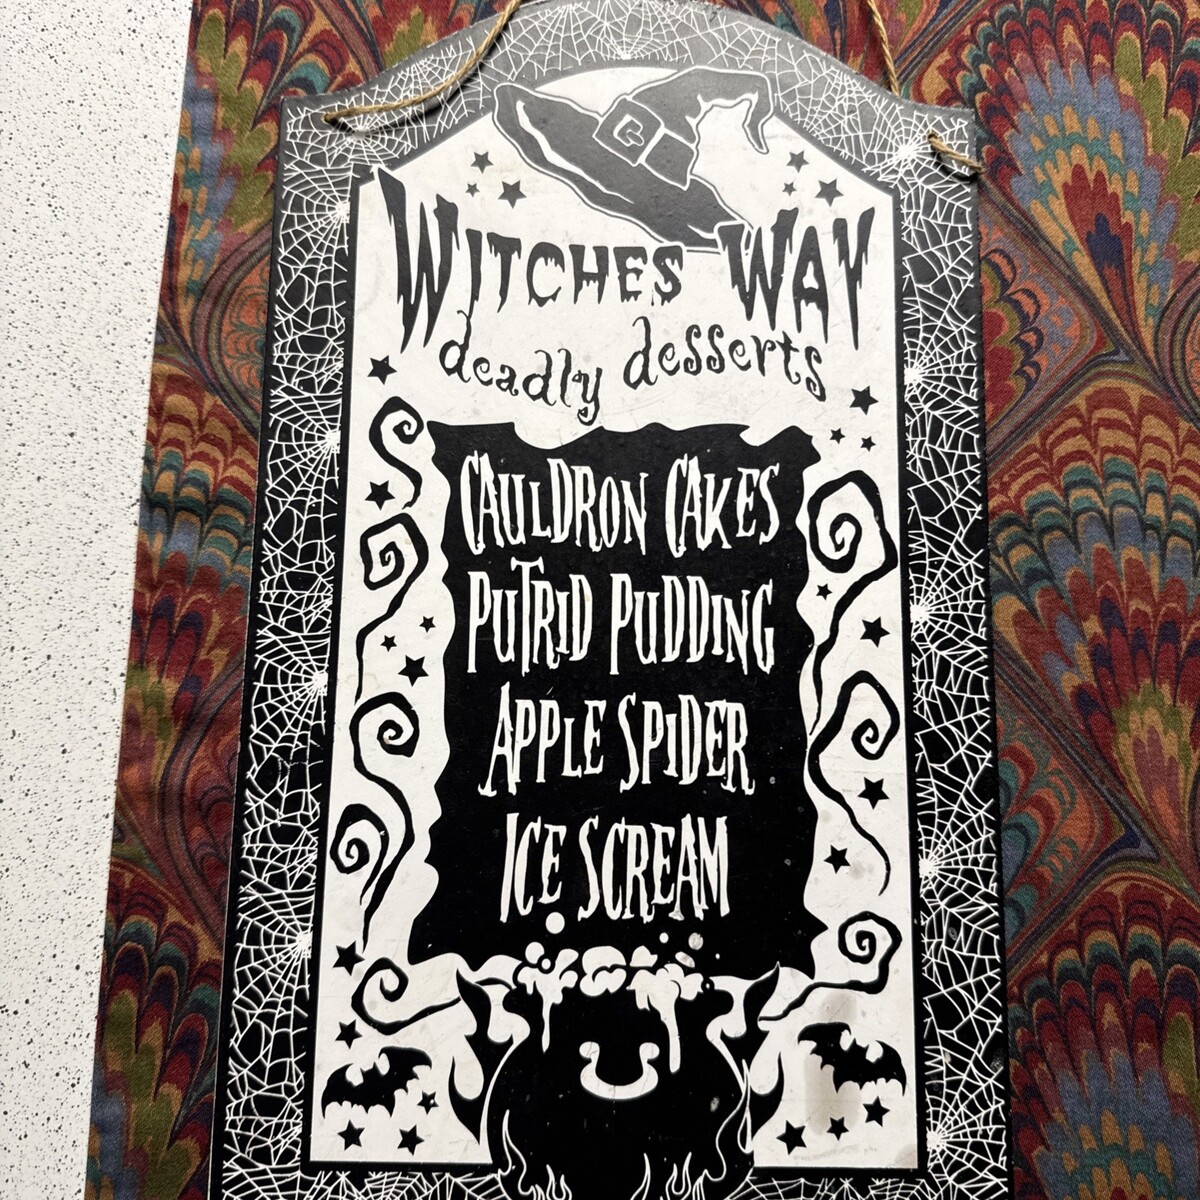 WITCHES WAY
deadly desserts
CAULDRON CAKES
PUTRID PUDDING
APPLE SPIDER
ICE SCREAM